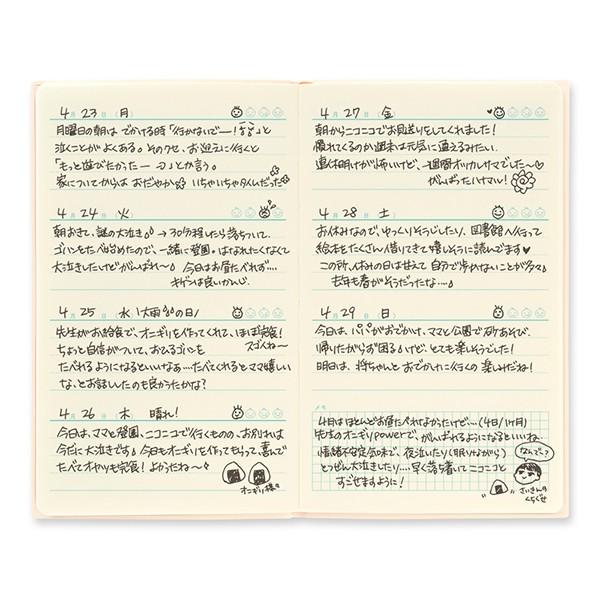 4月 23日 (月)
月曜日の朝は でかける時「行かないでー!」と
泣くことが よくある。そのクセ、お迎えに行くと
「もっと遊びたかったー」とか言う。
家についてからは おだやか いちゃいちゃタイムだった
4月 24日 火
朝おきて、謎の大泣き → 30分程したら落ちついて、
ゴハンをたべ始めたので、一緒に登園。はなれたくなくて
大泣きしたけどがんばれ〜 今日はお昼たべれず…
キゲンは良いかんじ。
4月 25日 水 (大雨の日)
先生がお給食で、オニギリを作ってくれて、ほぼ完食!
スゴくね〜
ちょっと自信がついて、おひるゴハンを
たべれるようになるといいなぁ…たべてくれるとママ嬉しい
な、とお話ししたのも良かったかな?
4月 26日 木 晴れ!
今日は、ママと登園、ニコニコで行くものの、お別れは
今だに大泣きです 今日もオニギリを作ってもらって、喜んで
たべてオヤツも完食! よかったね〜
オニギリ様々
4月 27日 金
朝からニコニコでお見送りをしてくれました!
慣れてくるのか週末は元気に通えるみたい。
連休明けが怖いけど、一週間オツカレサマでした〜♡
がんばったハナマル!
4月 28日 土
お休みなので、ゆっくりそうじしたり、図書館へ行って
絵本をたくさん借りてきて嬉しそうに読んでます♥
この所、休みの日は甘えて自分で歩かないことが多々
去年も春がそうだったな…
4月 29日 日
今日は、パパがおでかけ、ママと公園で砂あそび、
帰りたがらず困るけど、とても楽しそうでした!
明日は、将ちゃんとおでかけに行くの楽しみだね!
メモ
4月はほとんどお昼たべれなかったけど…(4日/1ヶ月)
先生のオニギリpowerで、がんばれるようになるといいね。
情緒不安定気味で、夜泣いたり(眠りながら)
とつぜん大泣きしたり…早く落ち着いてニコニコと
すごせますように!
なんで〜?
さいきんの
くちぐせ